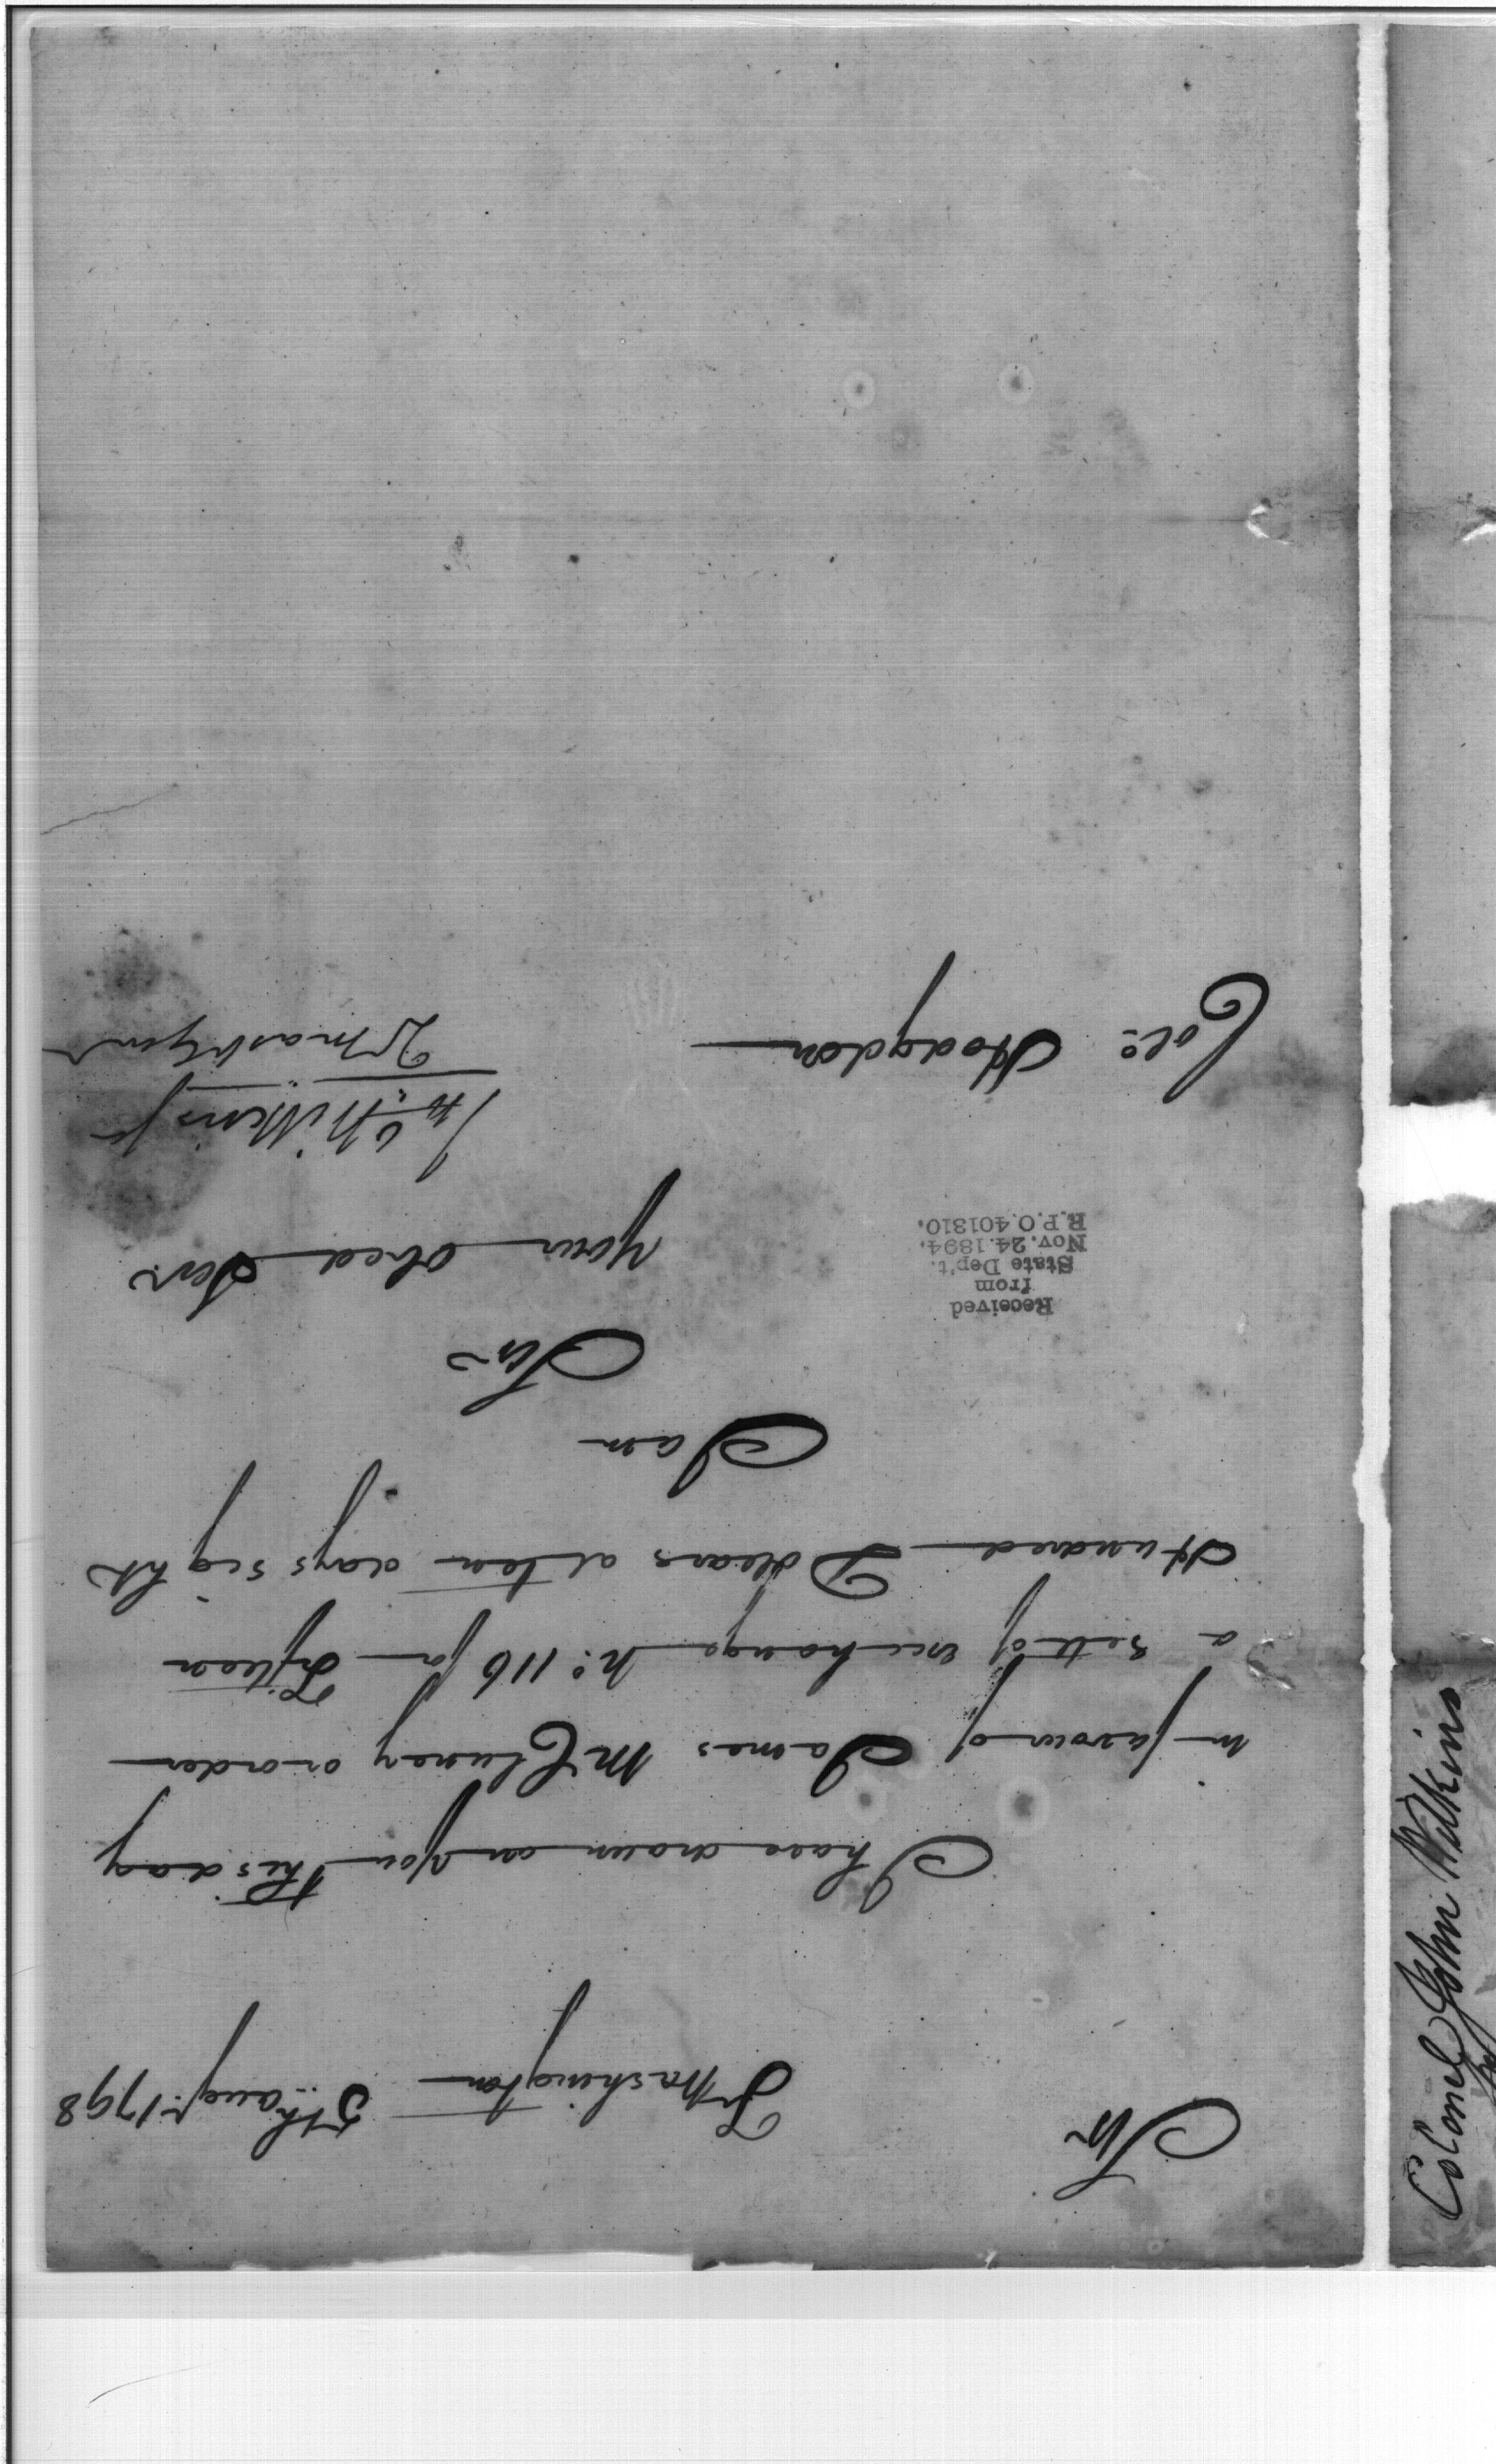 Sir
Ft Washington 5th Augt 1798
I have drawn on you this day
in favour of James McClurey or order
a sett of exchange No. 116 for Fifteen
Hundred Dollars at ten days sight
I am
Sir
your obed Servt
Jno Wilkins Jr
Qr Mast Genl
Colo. Hodgdon
Received
from
State Dep't.
Nov. 24. 1894.
R.P.O. 401310.
Colonel John Wilkins